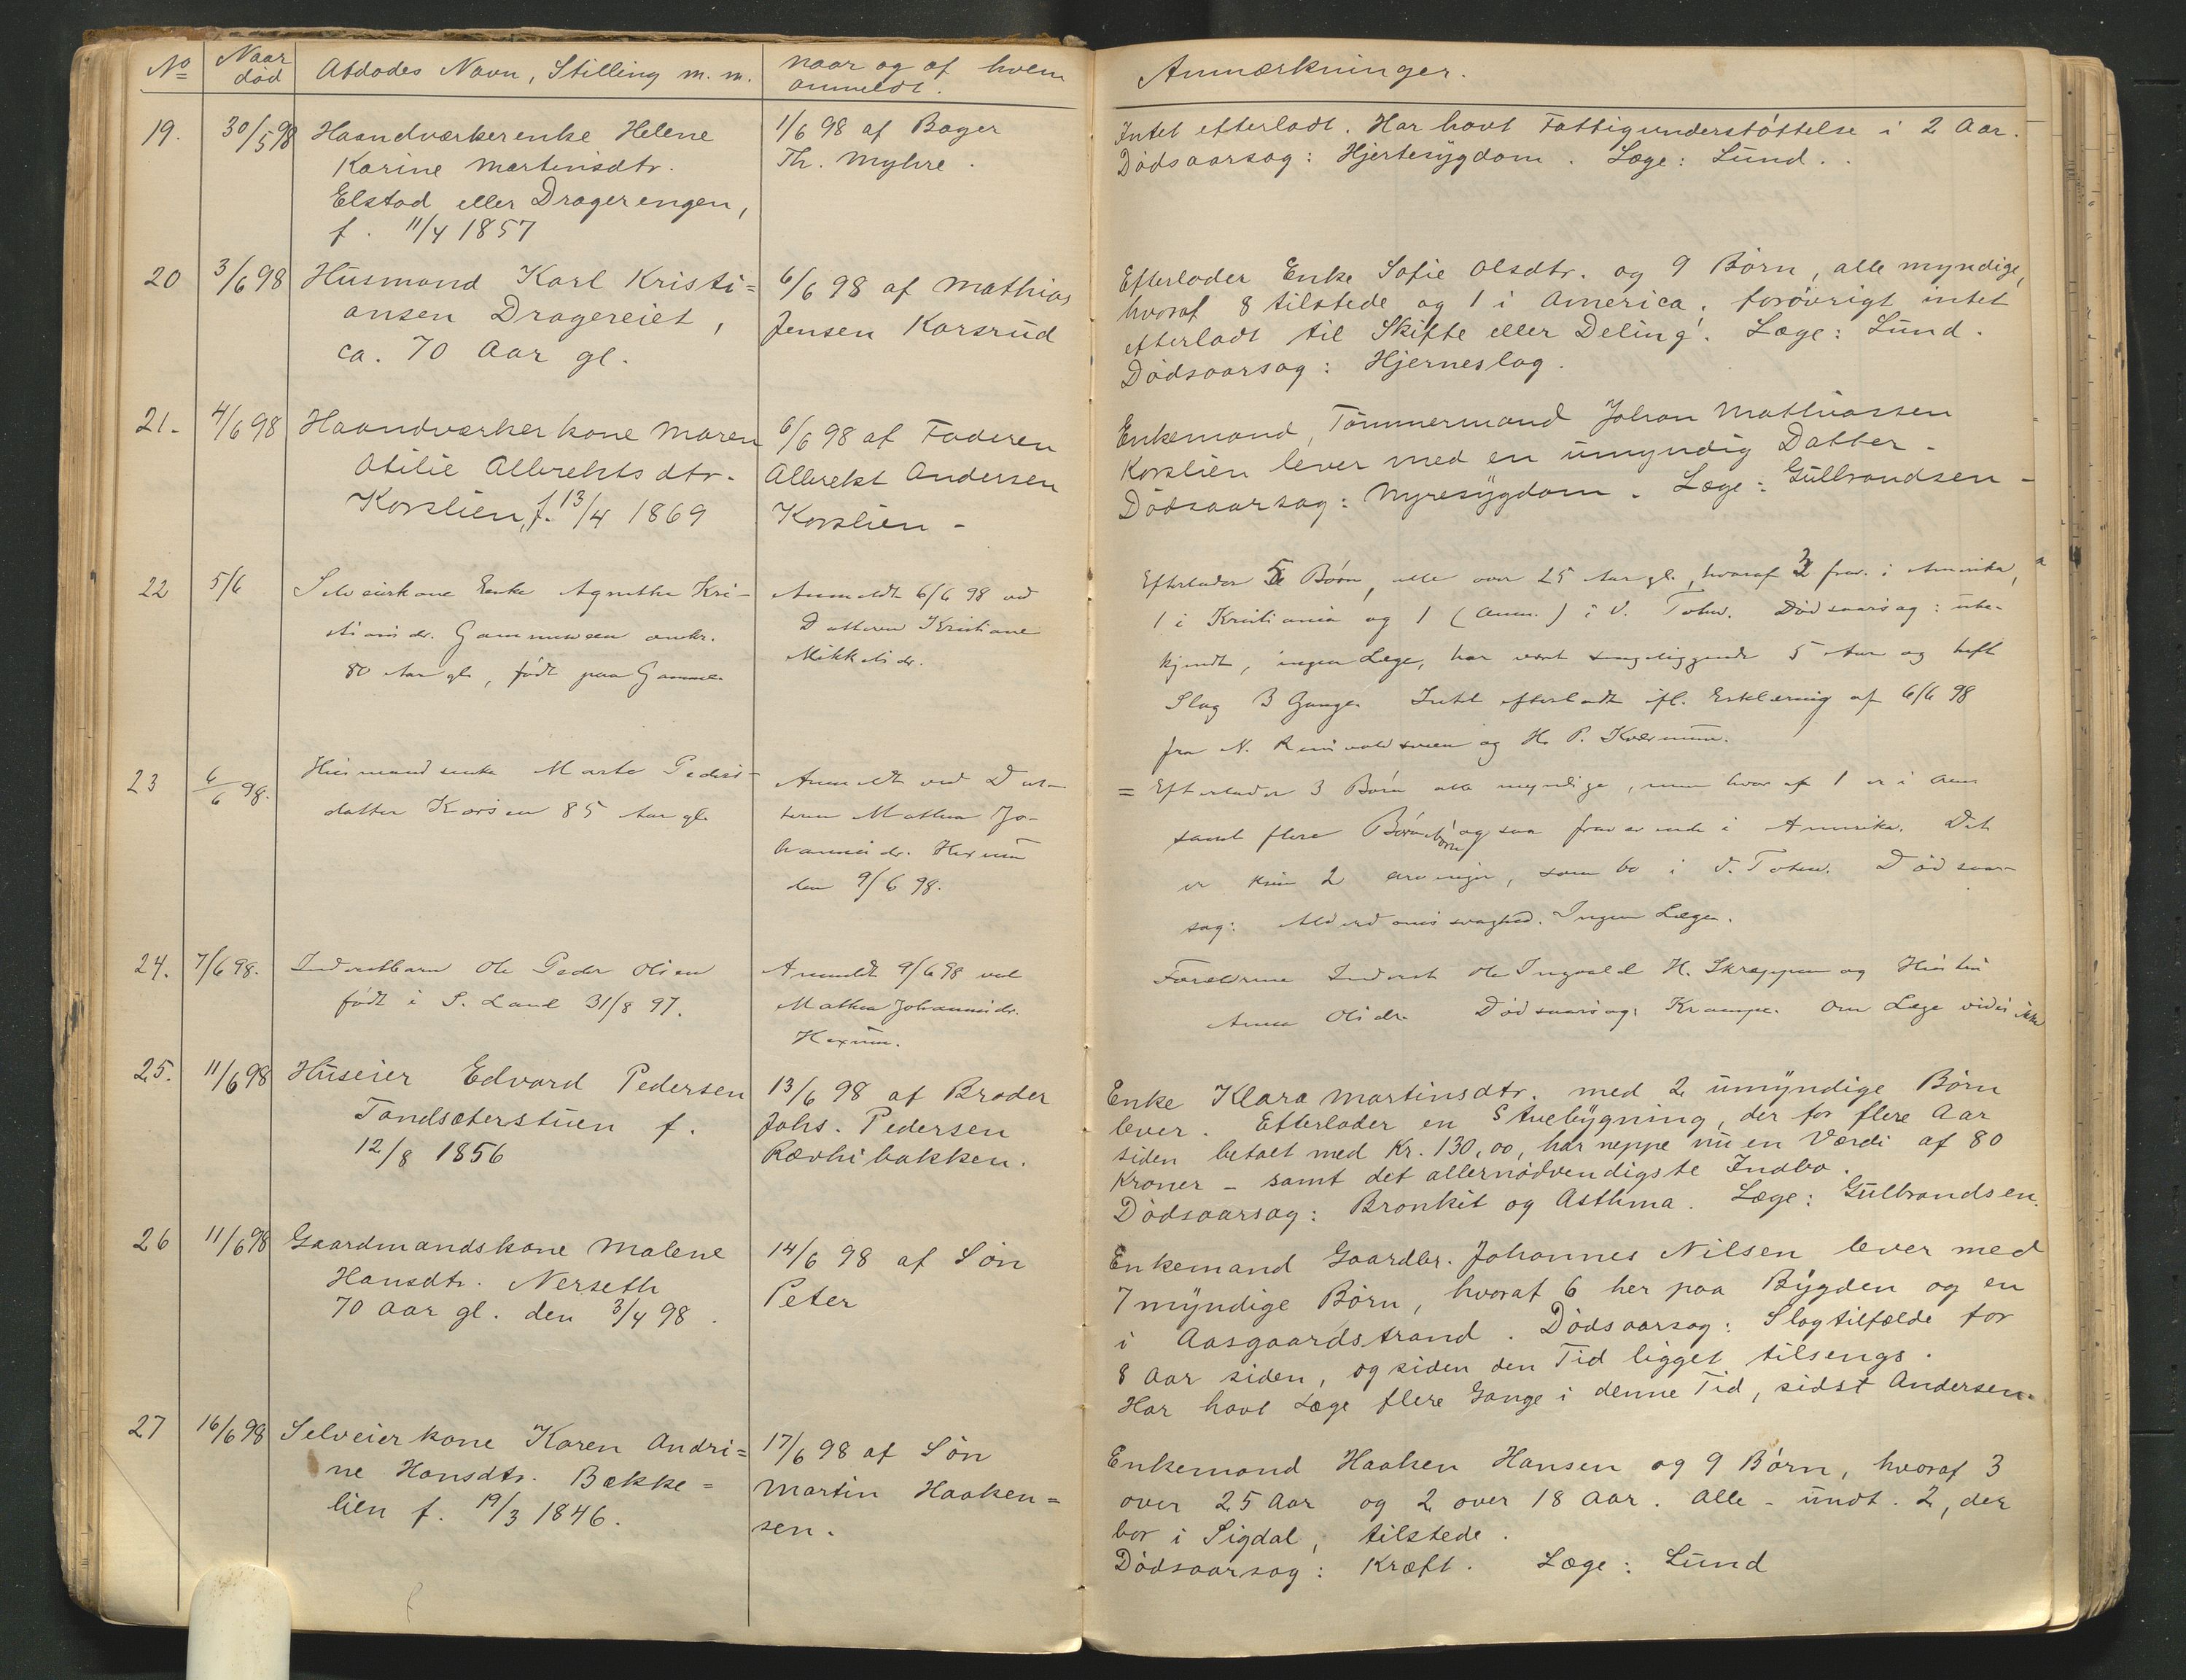 No Naar død Afdødes Navn, Stilling m. m. naar og af hvem anmeldt. Anmærkninger.
19. 30/5 98 Haandværkerenke Helene
Karine Martinsdtr.
Elstad eller Dragerengen,
f. 11/4 1857
1/6 98 af Bager
Th. Myhre.
Intet efterladt. Har havt Fattigunderstøttelse i 2 Aar.
Dødsaarsag: Hjertesygdom. Læge: Lund.
20 3/6 98 Husmand Karl Kristi=
ansen Dragereiet,
ca. 70 Aar gl.
6/6 98 af Mathias
Jensen Korsrud
Efterlader Enke Sofie Olsdtr. og 9 Børn, alle myndige,
hvoraf 8 tilstede og 1 i America. forøvrigt intet
efterladt til Skifte eller Deling. Læge: Lund.
Dødsaarsag: Hjerneslag.
21. 4/6 98 Haandværkerkone Maren
Otilie Albrektsdtr.
Korslien, f. 13/4 1869
6/6 98 af Faderen
Albrekt Andersen
Korslien -
Enkemand, Tømmermand Johan Mathiassen
Korslien lever med en umyndig Datter -
Dødsaarsag: Nyresygdom. Læge: Gulbrandsen -
22 5/6 Selveierkone Enke Agnethe Kri-
stiansdr. Gammelseen omkr.
80 Aar gl., født paa Gamme
Anmeldt 6/6 98 ved
Datteren Kristiane
Mikkelsdr.
Efterlader 5 Børn, alle over 25 Aar gl., hvoraf 3 frav. i Amerika,
1 i Kristiania og 1 (Anm.) i V. Toten. Dødsaarsag: ube-
kjendt, ingen Læge, har været sengeliggende 5 Aar og haft
Slag 3 Gange. Intet efterladt ifl. Erklæring af 6/6 98
fra N. og H. P. Kværnum.
23 6/6 98. Husmandsenke Marte Peders-
datter Korsen 85 Aar gl.
Anmeldt ved Dat-
teren Mathea Jo-
hannesdr. Hexum
den 9/6 98.
= Efterlader 3 Børn alle myndige, men hvoraf 1 er i Am
samt flere Børnebørn ogsaa fraværende i Amerika. Det
er kun 2 arvinger, som bo i V. Toten. Dødsaar-
sag: Alderdomssvaghed. Ingen Læge.
24. 7/6 98. Inderstbarn Ole Peder Olsen
født i S. Land 31/8 97.
Anmeldt 9/6 98 ved
Mathea Johannesdr.
Hexum.
Forældrene Inderst Ole Ingvald H. Skrappen og Hustru
Anna Olsdr. Dødsaarsag: Krampe. Om Læge vides ikke
25. 11/6 98 Huseier Edvard Pedersen
Tandsæterstuen f.
12/8 1856
13/6 98 af Broder
Johs. Pedersen
Rævhibakken.
Enke Klara Martinsdtr. med 2 umyndige Børn
lever. Efterlader en Stuebygning, der for flere Aar
siden betalt med Kr. 130,00, har neppe nu en Værdi af 80
Kroner - samt det allernødvendigste Indbo.
Dødsaarsag: Bronkit og Asthma. Læge: Gulbrandsen.
26 11/6 98 Gaardmandskone Malene
Hansdtr. Nerseth
70 Aar gl. den 3/4 98.
14/6 98 af Søn
Peter
Enkemand Gaardbr. Johannes Nilsen lever med
7 myndige Børn, hvoraf 6 her paa Bygden og en
i Aasgaardstrand. Dødsaarsag: Slagtilfælde for
8 Aar siden, og siden den Tid ligget tilsengs.
Har havt Læge flere Gange i denne Tid, sidst Andersen.
27 16/6 98 Selveierkone Karen Andri=
ne Hansdtr. Bække=
lien f. 19/3 1846.
17/6 98 af Søn
Martin Haaken=
sen.
Enkemand Haaken Hansen og 9 Børn, hvoraf 3
over 25 Aar og 2 over 18 Aar. Alle - undt. 2, der
bor i Sigdal, tilstede.
Dødsaarsag: Kræft. Læge: Lund